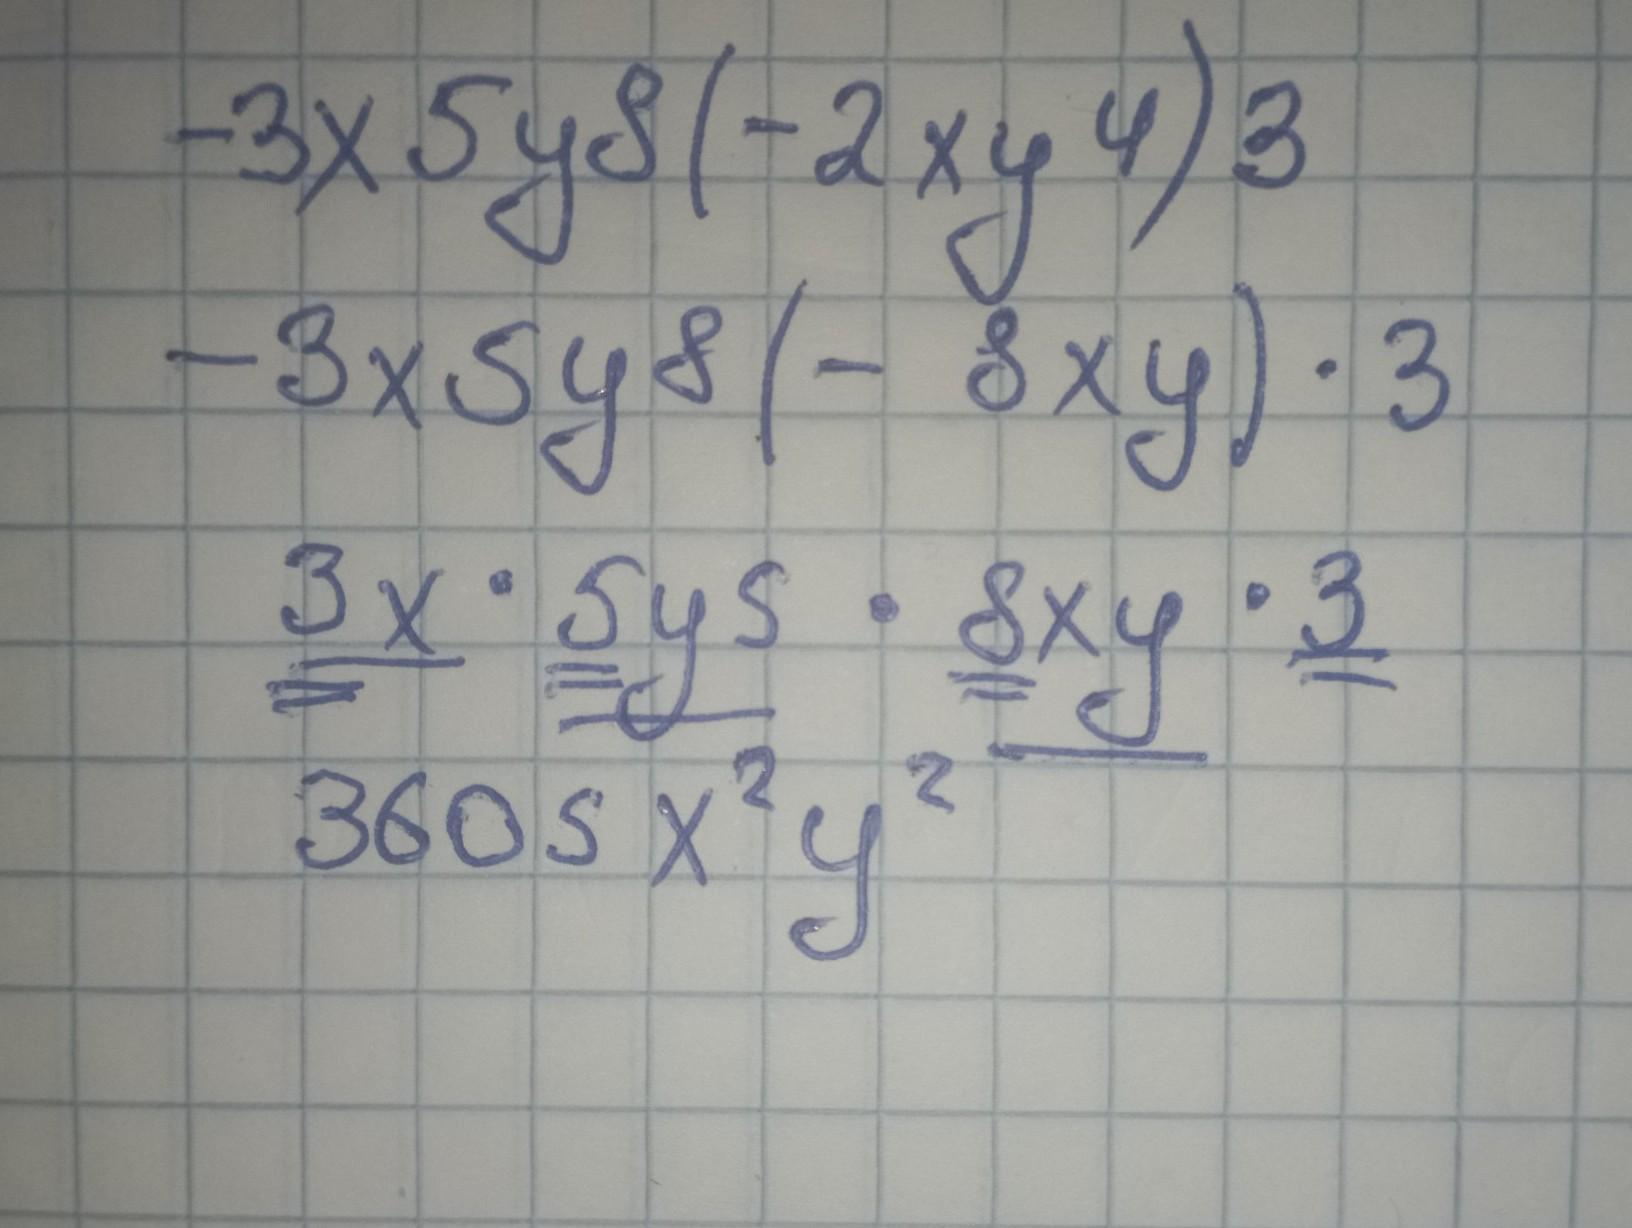 -3x5y8(-2xy4)3
-3x5y8(-8xy)·3
3x·5ys·8xy·3
360sx²y²